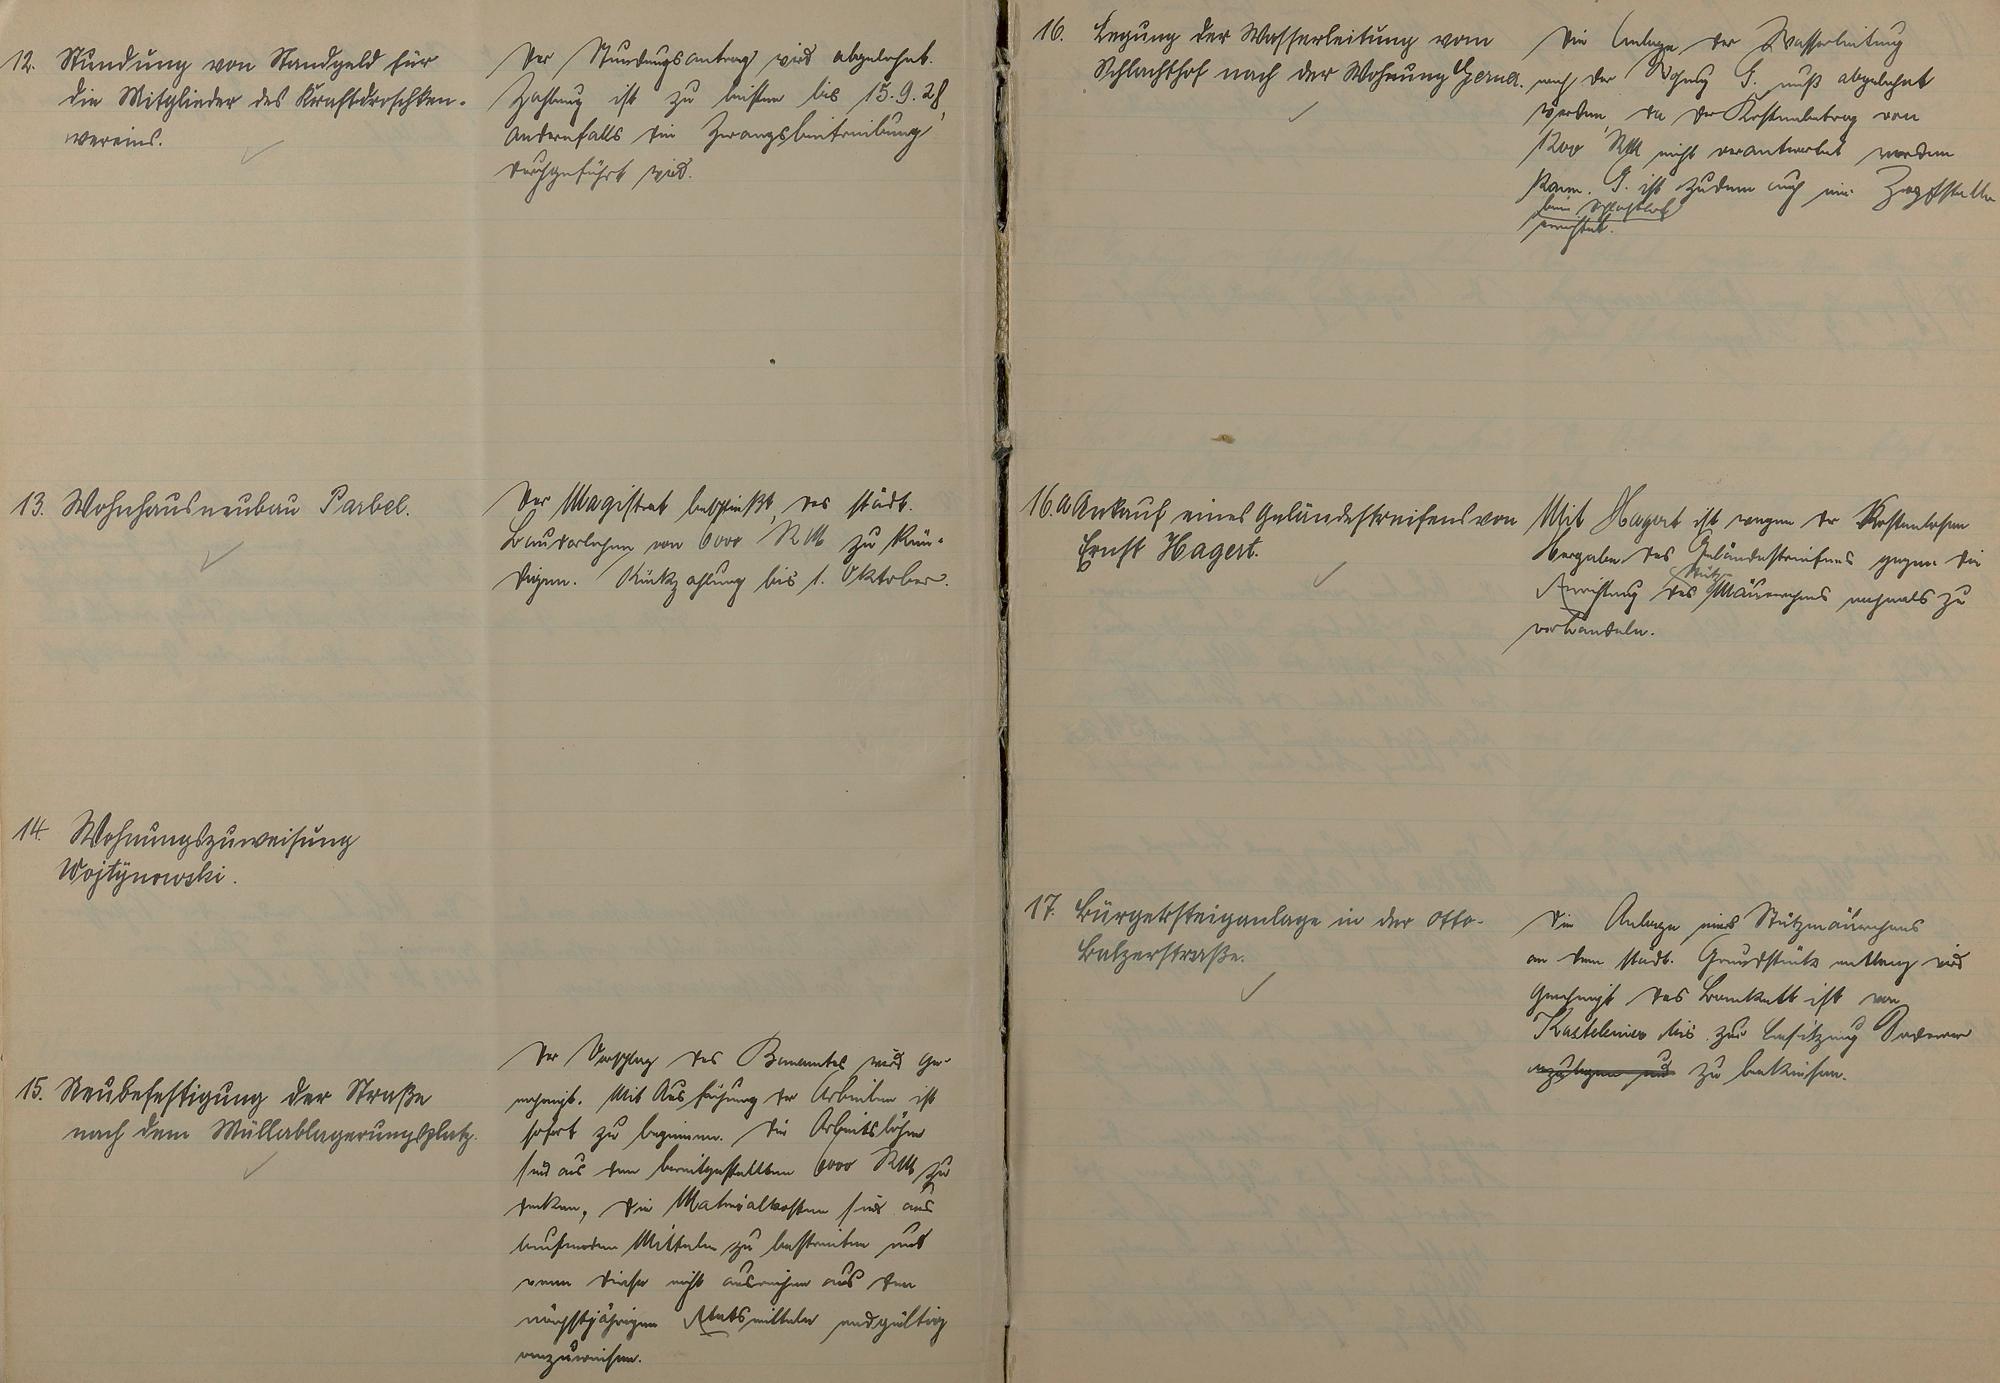 12. Stundung von Standgeld für
die Mitglieder des Kraftdroschken-
vereins.
Der Stundungsantrag wird abgelehnt.
Zahlung ist zu leisten bis 15.9.28,
andernfalls die Zwangsbeitreibung
durchgeführt wird.
13. Wohnhausneubau Parbel.
Der Magistrat beschließt, das städt.
Baudarlehen von 6000 RM zu kün-
digen. Rückzahlung bis 1. Oktober.
14. Wohnungszuweisung
Wojtynowski.
15. Neubefestigung der Straße
nach dem Müllablagerungsplatz.
Der Vorschlag des Bauamtes wird ge-
nehmigt. Mit Ausführung der Arbeiten ist
sofort zu beginnen. Die Arbeitslöhne
sind aus den bereitgestellten 6000 RM zu
decken, die Materialkosten sind aus
laufenden Mitteln zu bestreiten und
wenn diese nicht ausreichen aus den
nächstjährigen Etatsmitteln endgültig
anzuweisen.
16. Legung der Wasserleitung vom
Schlachthof nach der Wohnung Gerna.
Die Anlage der Wasserleitung
nach der Wohng G. muß abgelehnt
werden, da der Kostenbetrag von
1200 RM nicht verantwortet werden
kann. G. ist zudem auch eine Zapfstelle
beim Schlachthof
errichtet.
16.a Ankauf eines Geländestreifens von
Ernst Hagert.
Mit Hagert ist wegen der kostenlosen
Hergabe des Geländestreifens gegen die
Errichtung des Stützmäuerchens nochmals zu
verhandeln.
17. Bürgersteiganlage in der Otto-
Balzerstraße.
Die Anlage eines Stützmäuerchens
an dem städt. Grundstück entlang wird
genehmigt das Bankett ist von
Kastelenier bis zur Besitzung
zu bekiesen.